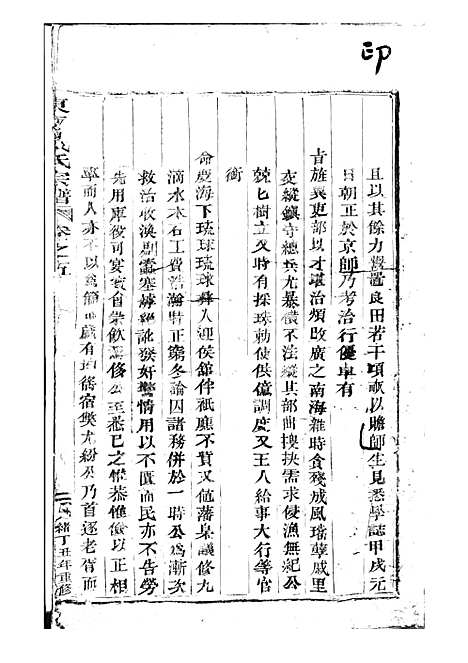 印
且以其餘力置良田若干頃畝以贍師生見悉學誌甲戌元
日朝正於京師乃考治行優卓有
旨旌異吏部以才堪治煩改廣之南海雜時貪殘成風璫孽戚里
交縱鎮守總兵尤暴橫不法縱其部曲掠抉需求侵漁無紀公
棘匕樹立又時有採珠勅使供億調度又王人給事大行等官
銜
命度海下琉球琉球彝人迎侯館伴祇應不貲又値藩臬議修九
滴水木石工費浩瀚時正窮冬論囚諸務併於一時公爲漸次
救治收渙剔蠹塞捭絕訛發奸警情用以不匱而民亦不告勞
先用庫役司宴賓自榮飲公至悉已之惟恭惟儉以正相
率而人亦不以爲簡歲有宿獘尤紛公乃首逐老胥而
東 氏宗譜 卷之五
緒丁丑年重修